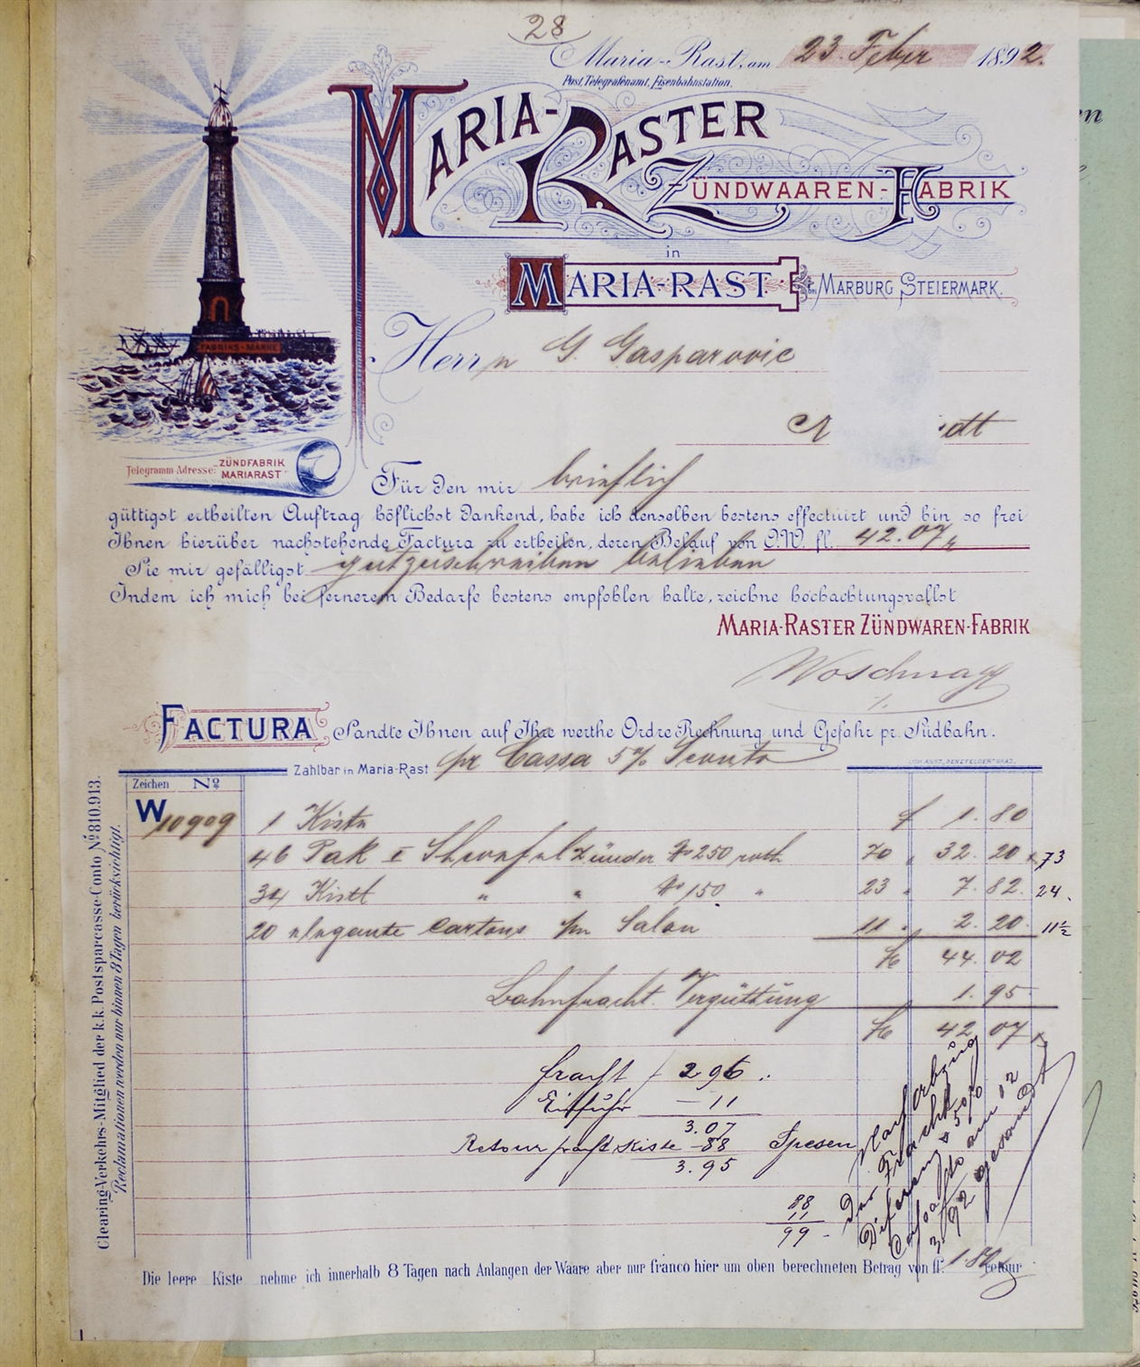 28
Maria-Rast, am 23. Feber 1892.
Post, Telegrafenamt, Eisenbahnstation.
MARIA-RASTER
ZÜNDWAAREN-FABRIK
in
MARIA-RAST bei MARBURG STEIERMARK.
FABRIKS-MARKE
Herrn G. Gasparovic
Telegramm-Adresse: ZÜNDFABRIK
MARIARAST
Für den mir brieflich
güttigst ertheilten Auftrag höflichst dankend, habe ich denselben bestens effectuirt und bin so frei
Ihnen hierüber nachstehende Factura zu ertheilen, deren Belauf von Ö.W. fl. 42.07
Sie mir gefälligst gutzuschreiben belieben
Indem ich mich bei fernerem Bedarfe bestens empfohlen halte, zeichne hochachtungsvollst
MARIA-RASTER ZÜNDWAREN-FABRIK
Woschnagg
FACTURA Sandte Ihnen auf Ihre werthe Ordre Rechnung und Gefahr pr. Südbahn.
Zahlbar in Maria-Rast pr Cassa 5% Sconto
Zeichen No
W 10909 1 Kiste f 1. 80
46 Pak I zünder No 250 roth 70 32. 20 73
34 Kistl " " No 150 " 23 7. 82. 24.
20 elegante Cartons pr Salon 11 2. 20. 11½
fl 44. 02
Bahnfracht Vergüttung 1. 95
fl 42. 07
fracht 2 96
11
3.07
Retour fracht Kiste -88 Spesen
3.95
88
11
99
Clearing-Verkehrs-Mitglied der k.k. Postsparcasse-Conto No 810.913.
Reclamationen werden nur binnen 8 Tagen berücksichtigt.
Die leere Kiste nehme ich innerhalb 8 Tagen nach Anlangen der Waare aber nur franco hier um oben berechneten Betrag von fl. 1.80 retour